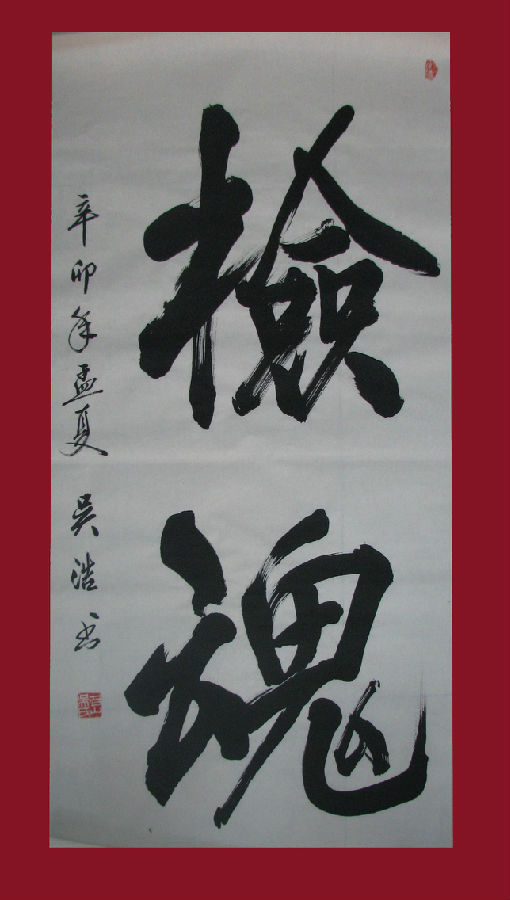 檢魂
辛卯年孟夏 吴浩书